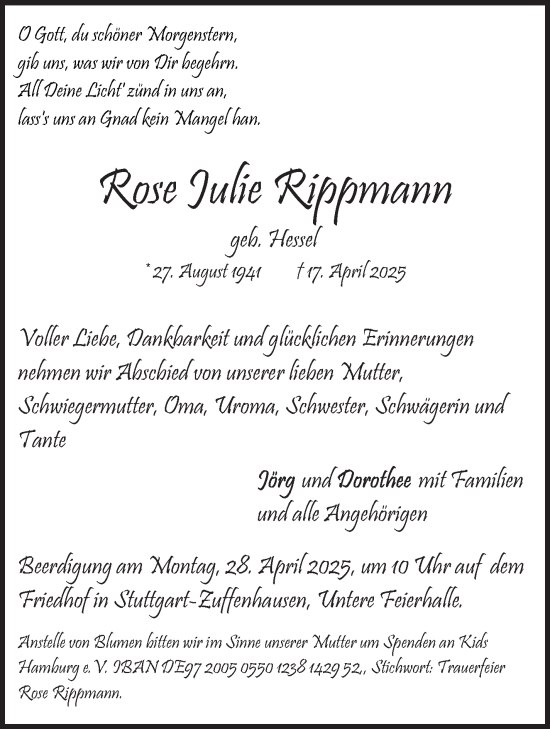 O Gott, du schöner Morgenstern,
gib uns, was wir von Dir begehrn.
All Deine Licht' zünd in uns an,
lass's uns an Gnad kein Mangel han.
Rose Julie Rippmann
geb. Hessel
* 27. August 1941 † 17. April 2025
Voller Liebe, Dankbarkeit und glücklichen Erinnerungen
nehmen wir Abschied von unserer lieben Mutter,
Schwiegermutter, Oma, Uroma, Schwester, Schwägerin und
Tante
Jörg und Dorothee mit Familien
und alle Angehörigen
Beerdigung am Montag, 28. April 2025, um 10 Uhr auf dem
Friedhof in Stuttgart-Zuffenhausen, Untere Feierhalle.
Anstelle von Blumen bitten wir im Sinne unserer Mutter um Spenden an Kids
Hamburg e. V. IBAN DE97 2005 0550 1238 1429 52,, Stichwort: Trauerfeier
Rose Rippmann.